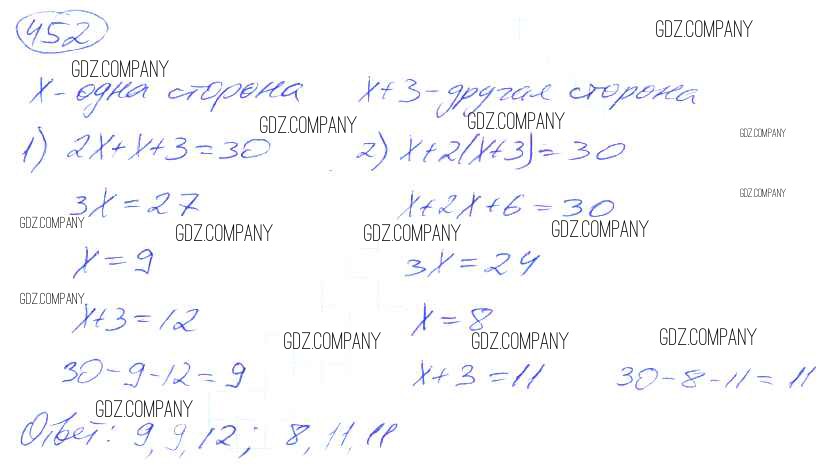 452
GDZ.COMPANY
GDZ.COMPANY
x - одна сторона x+3 - другая сторона
GDZ.COMPANY GDZ.COMPANY GDZ.COMPANY
1) 2x+x+3=30 2) x+2(x+3)=30
3x=27 x+2x+6=30
GDZ.COMPANY GDZ.COMPANY
GDZ.COMPANY GDZ.COMPANY GDZ.COMPANY
x=9 3x=24
GDZ.COMPANY
x+3=12 x=8
GDZ.COMPANY GDZ.COMPANY GDZ.COMPANY
30-9-12=9 x+3=11 30-8-11=11
GDZ.COMPANY
Ответ: 9,9,12; 8,11,11